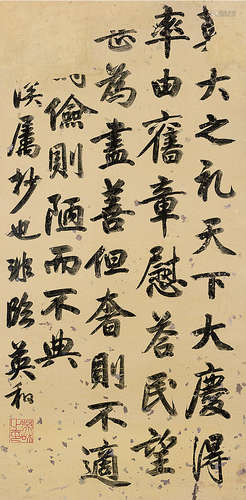 莫大之礼天下大慶得
率由舊章慰荅民望
為盡善但奢則不適
儉則陋而不典
属抄也非臨英和